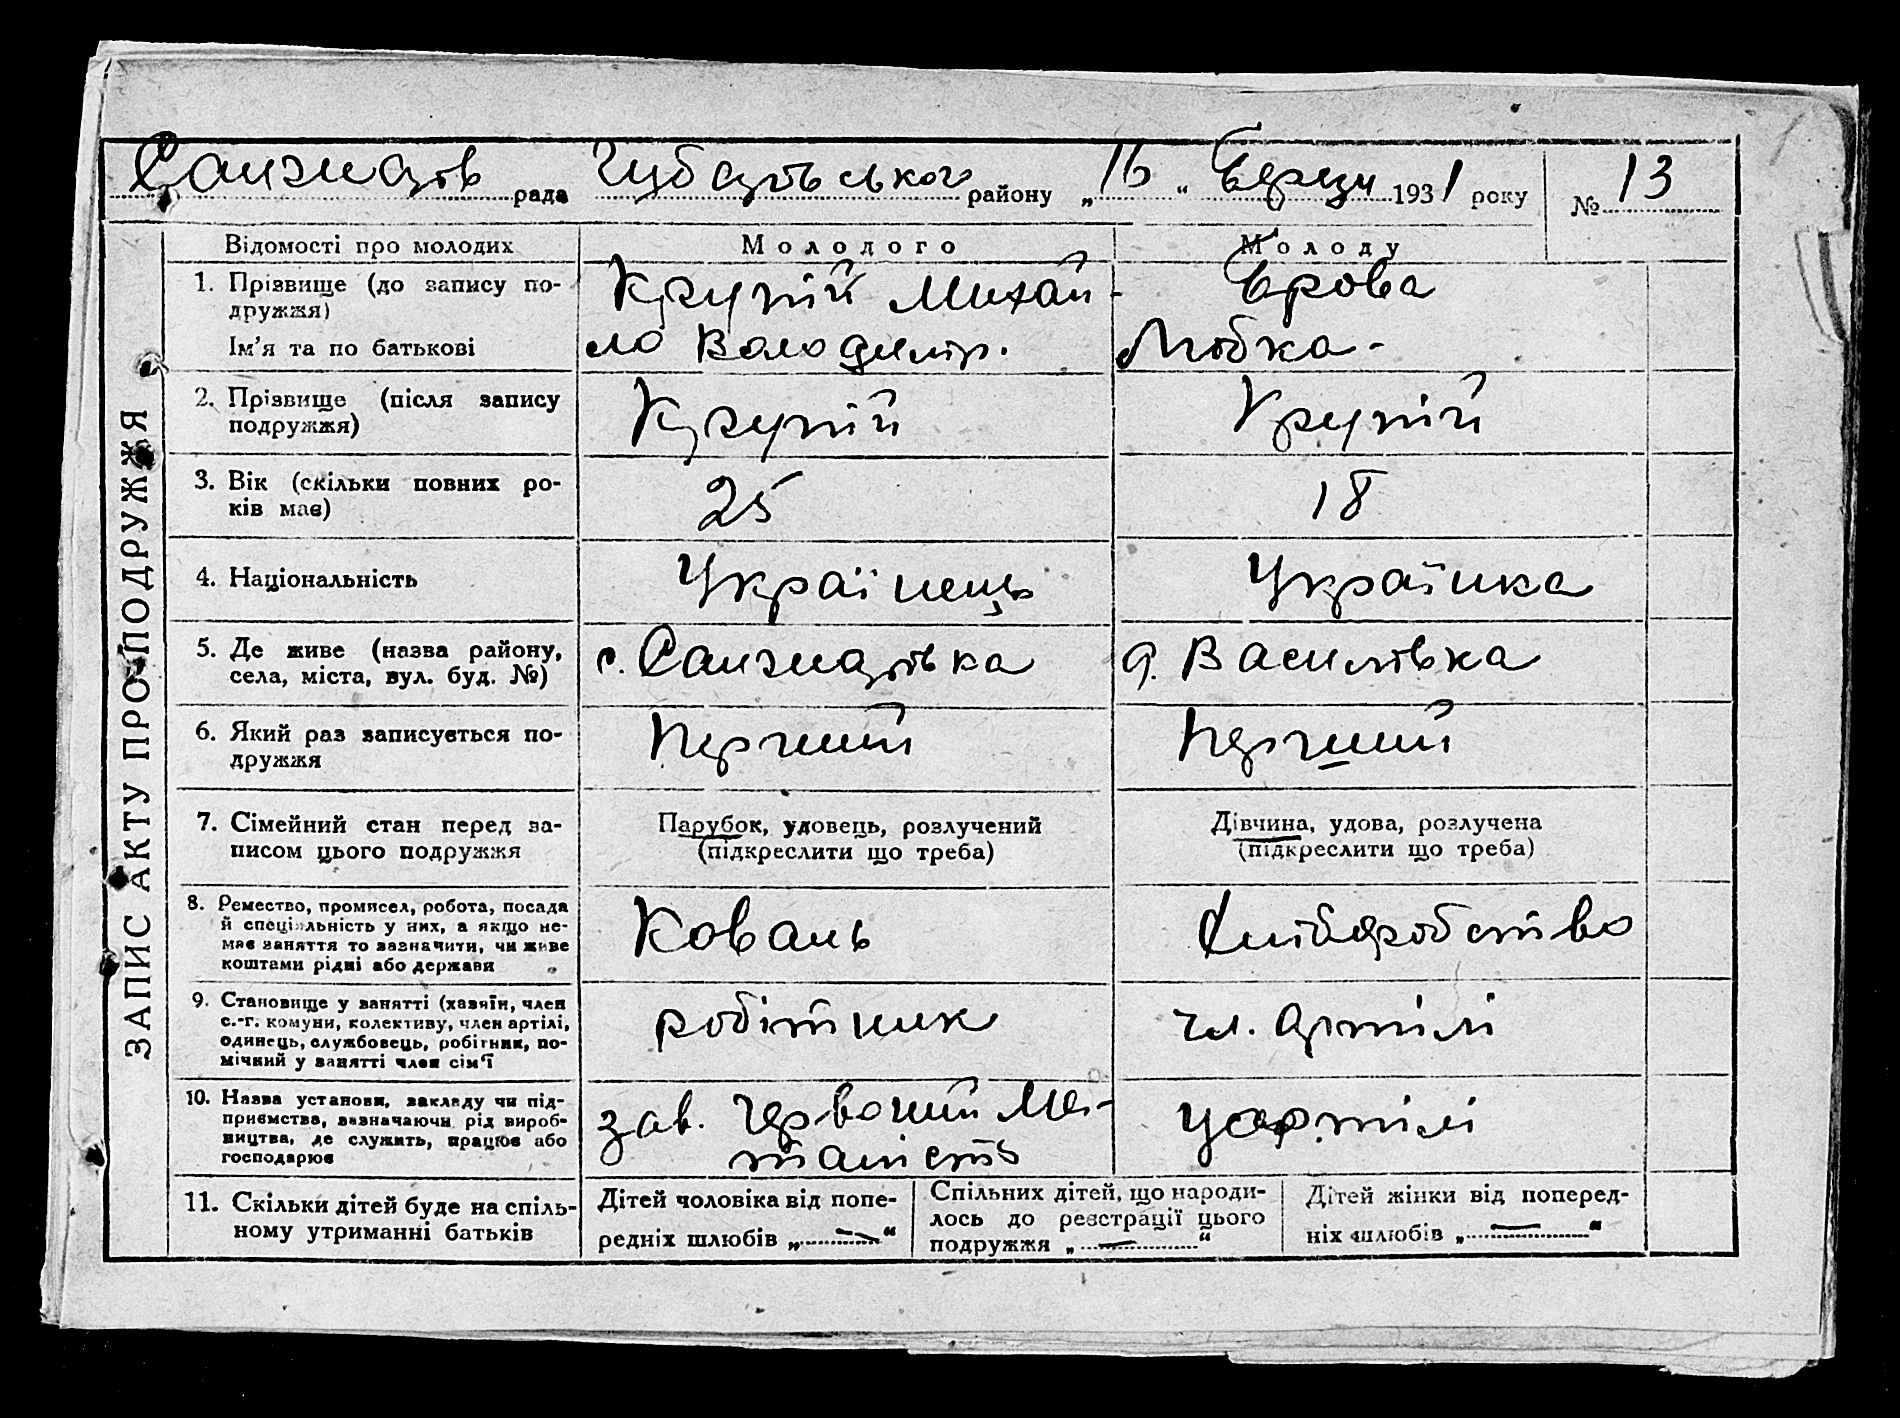 Санжарів рада Чубарівського району „ 16 " Березня 1931 року № 13
ЗАПИС АКТУ ПРО ПОДРУЖЖЯ
Відомості про молодих Молодого Молоду
1. Прізвище (до запису по-
дружжя)
Ім'я та по батькові
Крупій Михай-
ло Володимір.
Єрова
Любка -
2. Прізвище (після запису
подружжя)
Крупій
Крупій
3. Вік (скільки повних ро-
ків має)
25
18
4. Національність
Українець
Українка
5. Де живе (назва району,
села, міста, вул. буд. №)
с. Санжарівка
д. Василівка
6. Який раз записується по-
дружжя
Перший
Перший
7. Сімейний стан перед за-
писом цього подружжя
Парубок, удовець, розлучений
(підкреслити що треба)
Дівчина, удова, розлучена
(підкреслити що треба)
8. Ремество, промисел, робота, посада
й спеціяльність у них, а якщо не-
має заняття то зазначити, чи живе
коштами рідні або держави
Коваль
Хліборобство
9. Становище у занятті (хазяїн, член
с.-г. комуни, колективу, член артілі,
одинець, службовець, робітник, по-
мічний у занятті член сім'ї
робітник
чл. артілі
10. Назва установи, закладу чи під-
приємства, зазначаючи рід вироб-
ництва, де служить, працює або
господарює
зав. Червоний Ме-
таліст
у артілі
11. Скільки дітей буде на спіль-
ному утриманні батьків
Дітей чоловіка від попе-
редніх шлюбів „ — "
Спільних дітей, що народи-
лось до реєстрації цього
подружжя „ — "
Дітей жінки від поперед-
ніх шлюбів „ — "